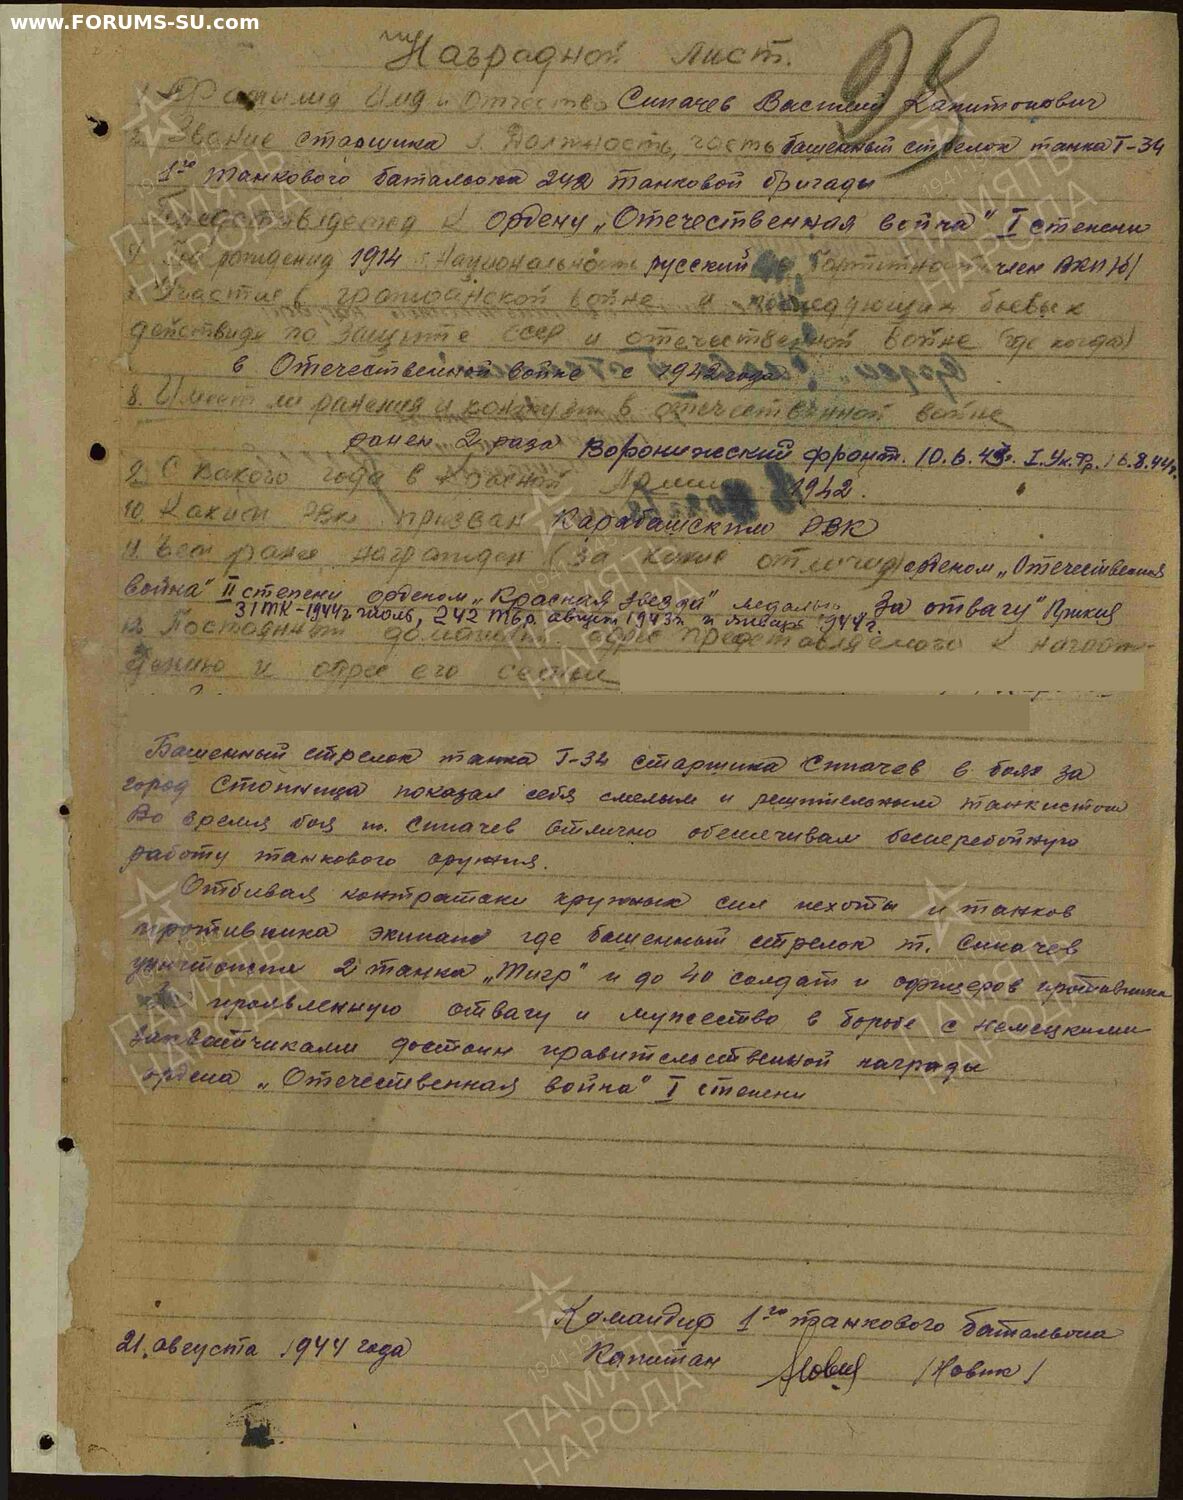 www.FORUMS-SU.com
Наградной лист.
98
1. Фамилия Имя и Отчество Сипачев Василий Капитонович
2. Звание старшина 3. Должность, часть башенный стрелок танка Т-34
1го танкового батальона 242 танковой бригады
Представляется к ордену „Отечественная война" I степени
4. Год рождения 1914 5. Национальность русский 6. Партийность член ВКП/б/
7. Участие в гражданской войне и последующих боевых
действиях по защите СССР и отечественной войне (где когда)
в Отечественной войне с 1942 года
8. Имеет ли ранения и контузии в отечественной войне
ранен 2 раза Воронижский фронт. 10.6.43г. I Ук.Фр. 16.8.44г.
9. С какого года в Красной Армии 1942.
10. Каким РВК призван Карабашским РВК
11. Чем ранее награжден (за какие отличия) орденом „Отечественная
война" II степени орденом „Красная Звезда" медалью „За отвагу" Приказ
31 ТК-1944г июль, 242 ТБр. август 1943г и январь 1944г.
12. Постоянный домашний адрес представляемого к награж-
дению и адрес его семьи
Башенный стрелок танка Т-34 старшина Сипачев в боях за
город Стопница показал себя смелым и решительным танкистом
Во время боя т. Сипачев отлично обеспечивал бесперебойную
работу танкового оружия.
Отбивая контратаки крупных сил пехоты и танков
противника экипаж где башенный стрелок т. Сипачев
уничтожил 2 танка „Тигр" и до 40 солдат и офицеров противника
За проявленную отвагу и мужество в борьбе с немецкими
захватчиками достоин правительственной награды
ордена „Отечественная война" I степени
Командир 1го танкового батальона
21. августа 1944 года Капитан Новик /Новик/
ПАМЯТЬ НАРОДА
1941-1945